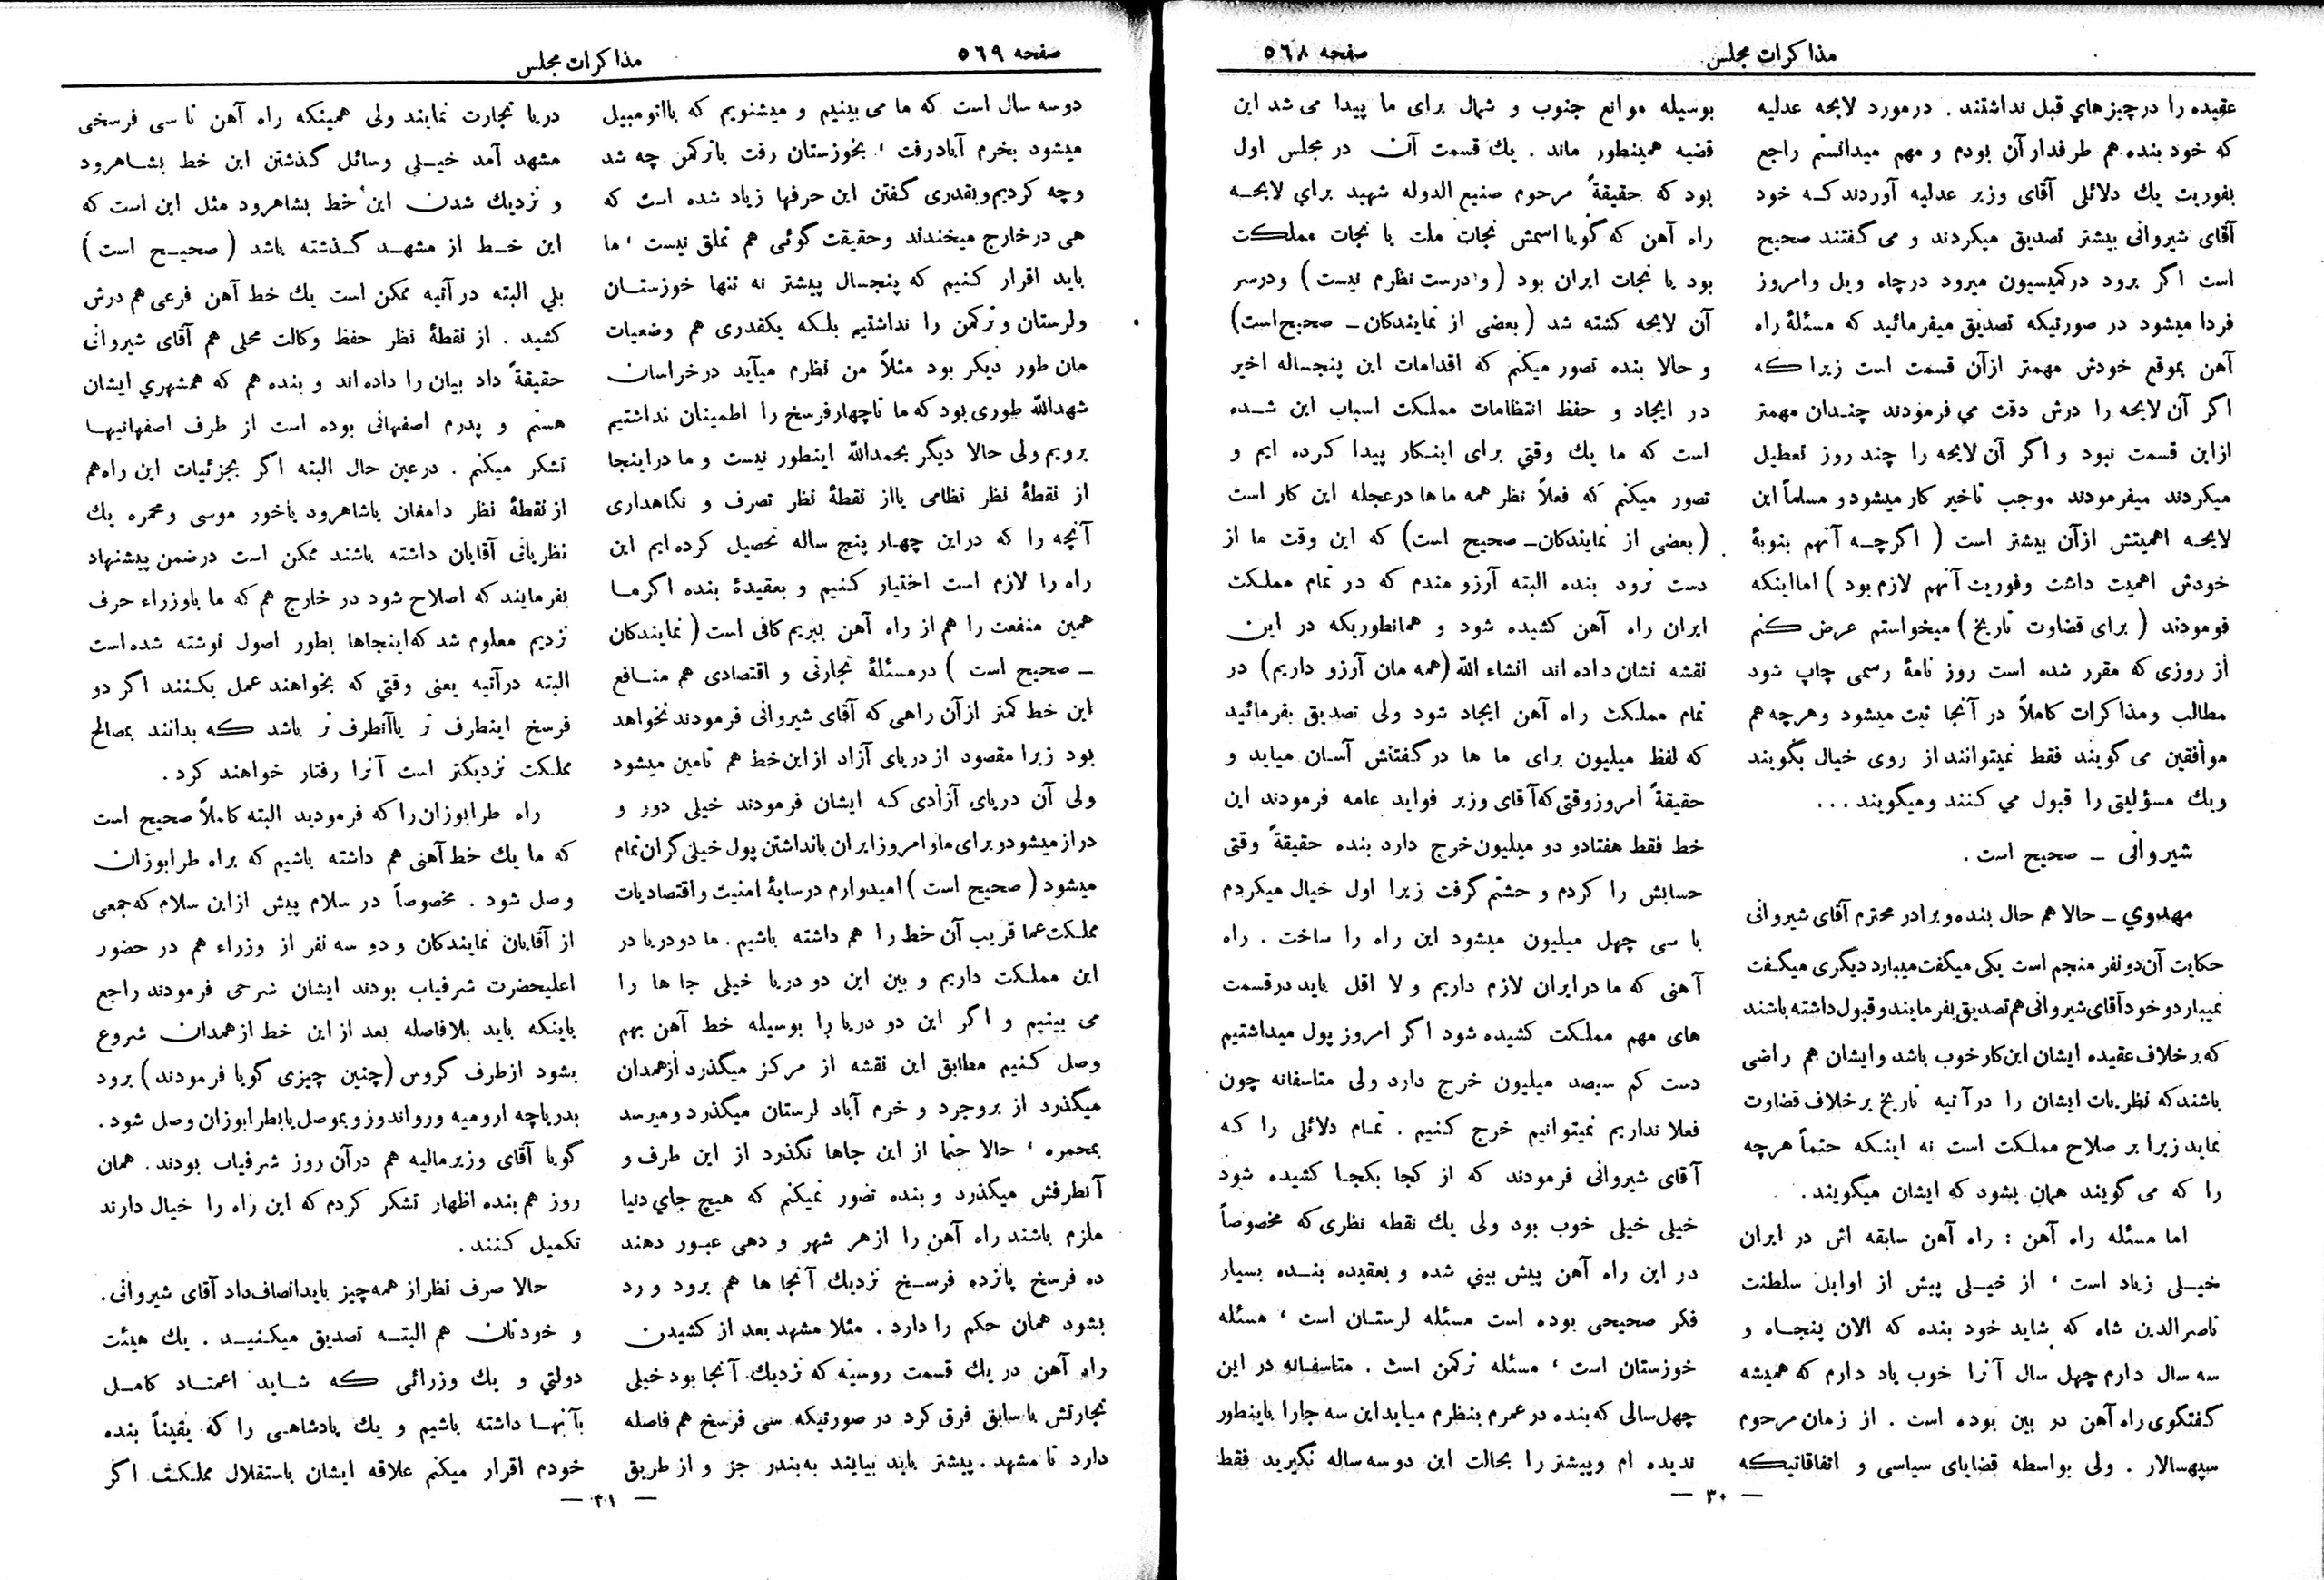 مذاکرات مجلس
صفحه ٥٦٨
عقیده را درچیزهاي قبل نداشتند . درمورد لایحه عدلیه
که خود بنده هم طرفدار آن بودم و مهم میدانستم راجع
بفوریت یك دلائلی آقای وزیر عدلیه آوردند کـه خود
آقای شیروانی بیشتر تصدیق میکردند و می گفتند صحیح
است اگر برود در کمیسیون میرود درچاه ویل وامروز
فردا میشود در صورتیکه تصدیق میفرمائید که مسئلهٔ راه
آهن بموقع خودش مهمتر از آن قسمت است زیرا که
اگر آن لایحه را درش دقت می فرمودند چنـدان مهمتر
ازاین قسمت نبود و اگر آن لایحه را چند روز تعطیل
میکردند میفرمودند موجب تاخیر کار میشود و مسلماً این
لایحـه اهمیتش ازآن بیشتر است ( اگرچـه آنهم بنوبهٔ
خودش اهمیت داشت وفوریت آنهم لازم بود ) امااینکه
فومودند ( برای قضاوت تاریخ ) میخواستم عرض کنم
از روزی که مقرر شده است روز نامهٔ رسمی چاپ شود
مطالب ومذاکرات کاملاً در آنجا ثبت میشود وهرچه هم
موافقین می گویند فقط نمیتوانند از روی خیال بگویند
ویك مسؤلیتی را قبول می کنند ومیگویند ...
شیروانی ــ صحیح است .
مهدوي ــ حالا هم حال بنده وبرادر محترم آقای شیروانی
حکایت آن دو نفر منجم است یکی میگفت میبارد دیگری میگـفت
نمیبارد و خود آقای شیروانی هم تصدیق بفرمایند و قبول داشته باشند
که برخلاف عقیده ایشان این کار خوب باشد وایشان هم راضی
باشند که نظریات ایشان را درآتیه تاریخ برخلاف قضاوت
نماید زیرا بر صلاح مملـکت است نه اینـکه حتماً هرچه
را که می گویند همان بشود که ایشان میگویند .
اما مسئله راه آهن : راه آهن سابقه اش در ایران
خیـلی زیاد است ، از خیـلی پیش از اوایل سلطنت
ناصرالدین شاه که شاید خود بنده که الان پنجـاه و
سه سال دارم چهل سال آنرا خوب یاد دارم که همیشه
گفتگوی راه آهن در بین بوده است . از زمان مرحوم
سپهسالار . ولی بواسطه قضایای سیاسی و اتفاقاتیـکه
بوسیله موانع جنوب و شمال برای ما پیدا می شد این
قضیه همینطور ماند . یك قسمت آن در مجلس اول
بود که حقیقةً مرحوم صنیع الدوله شهید براي لایحـه
راه آهن که گویا اسمش نجات ملت یا نجات مملکت
بود یا نجات ایران بود ( و درست نظرم نیست ) ودرسر
آن لایحه کشته شد ( بعضی از نمایندکان ــ صحیح است)
و حالا بنده تصور میکنم که اقدامات این پنجساله اخیر
در ایجاد و حفظ انتظامات مملـکت اسباب این شـده
است که ما یك وقتي برای اینـکار پیدا کرده ایم و
تصور میکنم که فعلاً نظر همه ماها درعجله این کار است
( بعضی از نمایندکان ــ صحیح است) که این وقت ما از
دست نرود بنده البته آرزو مندم که در تمام مملـکت
ایران راه آهن کشیده شود و همانطوریکه در این
نقشه نشان داده اند انشاء الله (همه مان آرزو داریم) در
تمام مملـکت راه آهن ایجاد شود ولی تصدیق بفرمائید
که لفظ میلیون برای ما ها در گفتنش آسان میاید و
حقیقةً امروز وقتی که آقای وزیر فواید عامه فرمودند این
خط فقط هفتادو دو میلیون خرج دارد بنده حقیقةً وقتی
حسابش را کردم و حشتم گرفت زیرا اول خیال میکردم
با سی چهل میلیون میشود این راه را ساخت . راه
آهنی که ما در ایران لازم داریم و لا اقل باید درقسمت
های مهم مملـکت کشیده شود اگر امروز پول میداشتیم
دست کم سیصد میلیون خرج دارد ولی متاسفانه چون
فعلا نداریم نمیتوانیم خرج کنیم . تمـام دلائلی را کـه
آقای شیروانی فرمودند که از کجا بکجـا کشیده شود
خیلی خیلی خوب بود ولی یك نقطه نظری که مخصوصاً
در این راه آهن پیش بیني شده و بعقیده بنـده بسیار
فکر صحیحی بوده است مسئله لرستـان است ، مسئله
خوزستان است ، مسئله ترکمن است . متاسفـانه در این
چهل سالی که بنده در عمرم بنظرم میاید این سه جارا باینطور
ندیده ام وپیشتر را بحالت این دوسه ساله نگیرید فقط
— ٣٠ —
صفحه ٥٦٩
مذاکرات مجلس
دوسه سال است که ما می بینیم و میشنویم که بااتومبیل
میشود بخرم آبادرفت ، بخوزستان رفت یاترکمن چه شد
وچه کردیم وبقدری گفتن این حرفها زیاد شده است که
هی درخارج میخندند وحقیقت گوئی هم تملق نیست ، ما
باید اقرار کنیم که پنجسال پیشتر نه تنها خوزستـان
ولرستان و ترکمن را نداشتیم بلـکه یکقدری هم وضعیات
مان طور دیگر بود مثلاً من نظرم میآید درخراسان
شهدالله طوری بود که ما تاچهارفرسخ را اطمینان نداشتیم
برویم ولی حالا دیگر بحمدالله اینطور نیست وما دراینجا
از نقطهٔ نظر نظامی یااز نقطهٔ نظر تصرف و نگاهداری
آنچه را که دراین چهـار پنج ساله تحصیل کرده ایم این
راه را لازم است اختیار کنیم و بعقیدهٔ بنده اگرمـا
همین منفعت را هم از راه آهن ببریم کافی است ( نمایندکان
ــ صحیح است ) درمسئلهٔ تجارتی و اقتصادی هم منـافع
این خط کمتر ازآن راهی که آقای شیروانی فرمودند نخواهد
بود زیرا مقصود از دریای آزاد از این خط هم تامین میشود
ولی آن دریای آزادی کـه ایشان فرمودند خیلی دور و
دراز میشود و برای ماو امروز ایران بانداشتن پول خیلی گران تمام
میشود ( صحیح است ) امیدوارم درسایهٔ امنیت و اقتصادیات
مملـکت عما قریب آن خط را هم داشته باشیم . ما دو دریا در
این مملـکت داریم و بین این دو دریا خیلی جا ها را
می بینیم و اگر این دو دریا را بوسیله خط آهن بهم
وصل کـنیم مطابق این نقشه از مرکز میگذرد ازهمدان
میگذرد از بروجرد و خرم آباد لرستان میگذرد ومیرسد
بمحمره ، حالا حتما از این جاها نگذرد از این طرف و
آنطرفش میگذرد و بنده تصور نمیکنم که هیچ جاي دنیا
ملزم باشند راه آهن را ازهر شهر و دهی عبـور دهند
ده فرسخ پانزده فرسـخ نزدیك آنجا ها هم برود و رد
بشود همان حکم را دارد . مثلا مشهد بعد از کشیدن
راه آهن در یك قسمت روسیه که نزدیك آنجا بود خیلی
تجارتش با سابق فرق کرد در صورتیکه سی فرسخ هم فاصله
دارد تا مشهد . پیشتر باید بیایند به بندر جز و از طریق
دریا تجارت نمایند ولی همینکه راه آهن تا سی فرسخی
مشهد آمد خیـلی وسائل گذشتن این خط بشـاهرود
و نزدیك شدن این خط بشاهرود مثل این است که
این خـط از مشهـد گـذشته باشد ( صحیـح است )
بلي البته در آتیه ممکن است یك خط آهن فرعی هم درش
کشید . از نقطهٔ نظر حفظ وکالت محلی هم آقای شیروانی
حقیقةً داد بیان را داده اند و بنده هم که همشهري ایشان
هستم و پدرم اصفهانی بوده است از طرف اصفهانیهـا
تشکر میکنم . درعین حال البته اگر بجزئیات این راه هم
از نقطهٔ نظر دامغان یاشاهرود یاخور موسی ومحمره یك
نظریاتی آقایان داشته باشند ممکن است درضمن پیشنهاد
بفرمایند که اصلاح شود در خارج هم که ما باوزراء حرف
زدیم معلوم شد که اینجاها بطور اصول نوشته شده است
البته درآتیه یعنی وقتي که بخواهند عمل بکـنند اگر دو
فرسخ اینطرف تر یاآنطرف تر باشد که بدانند بمصالح
مملـکت نزدیکتر است آنرا رفتار خواهند کرد .
راه طرابوزان را که فرمودید البته کاملاً صحیح است
که ما یك خط آهنی هم داشته باشیم که براه طرابوزان
وصل شود . مخصوصاً در سلام پیش ازاین سلام که جمعی
از آقایان نمایندکان و دو سه نفر از وزراء هم در حضور
اعلیحضرت شرفیاب بودند ایشان شرحی فرمودند راجع
باینکه باید بلافاصله بعد از این خط از همدان شروع
بشود ازطرف گروس (چنین چیزی گویا فرمودند) برود
بدریاچه ارومیه ورواندوز و بموصل یابطرابوزان وصل شود .
گویا آقای وزیر مالیه هم درآن روز شرفیاب بودند . همان
روز هم بنده اظهار تشکر کردم که این راه را خیال دارند
تکمیل کـنند .
حالا صرف نظر از همه چیز باید انصاف داد آقای شیروانی .
و خودتان هم البتـه تصدیق میکـنیـد . یك هیئت
دولتي و یك وزرائی که شـاید اعمتـاد کامـل
بآنهـا داشته باشیم و یك پادشاهـی را که یقیناً بنده
خودم اقرار میکنم علاقه ایشان باستقلال مملـکت اگر
— ٣١ —